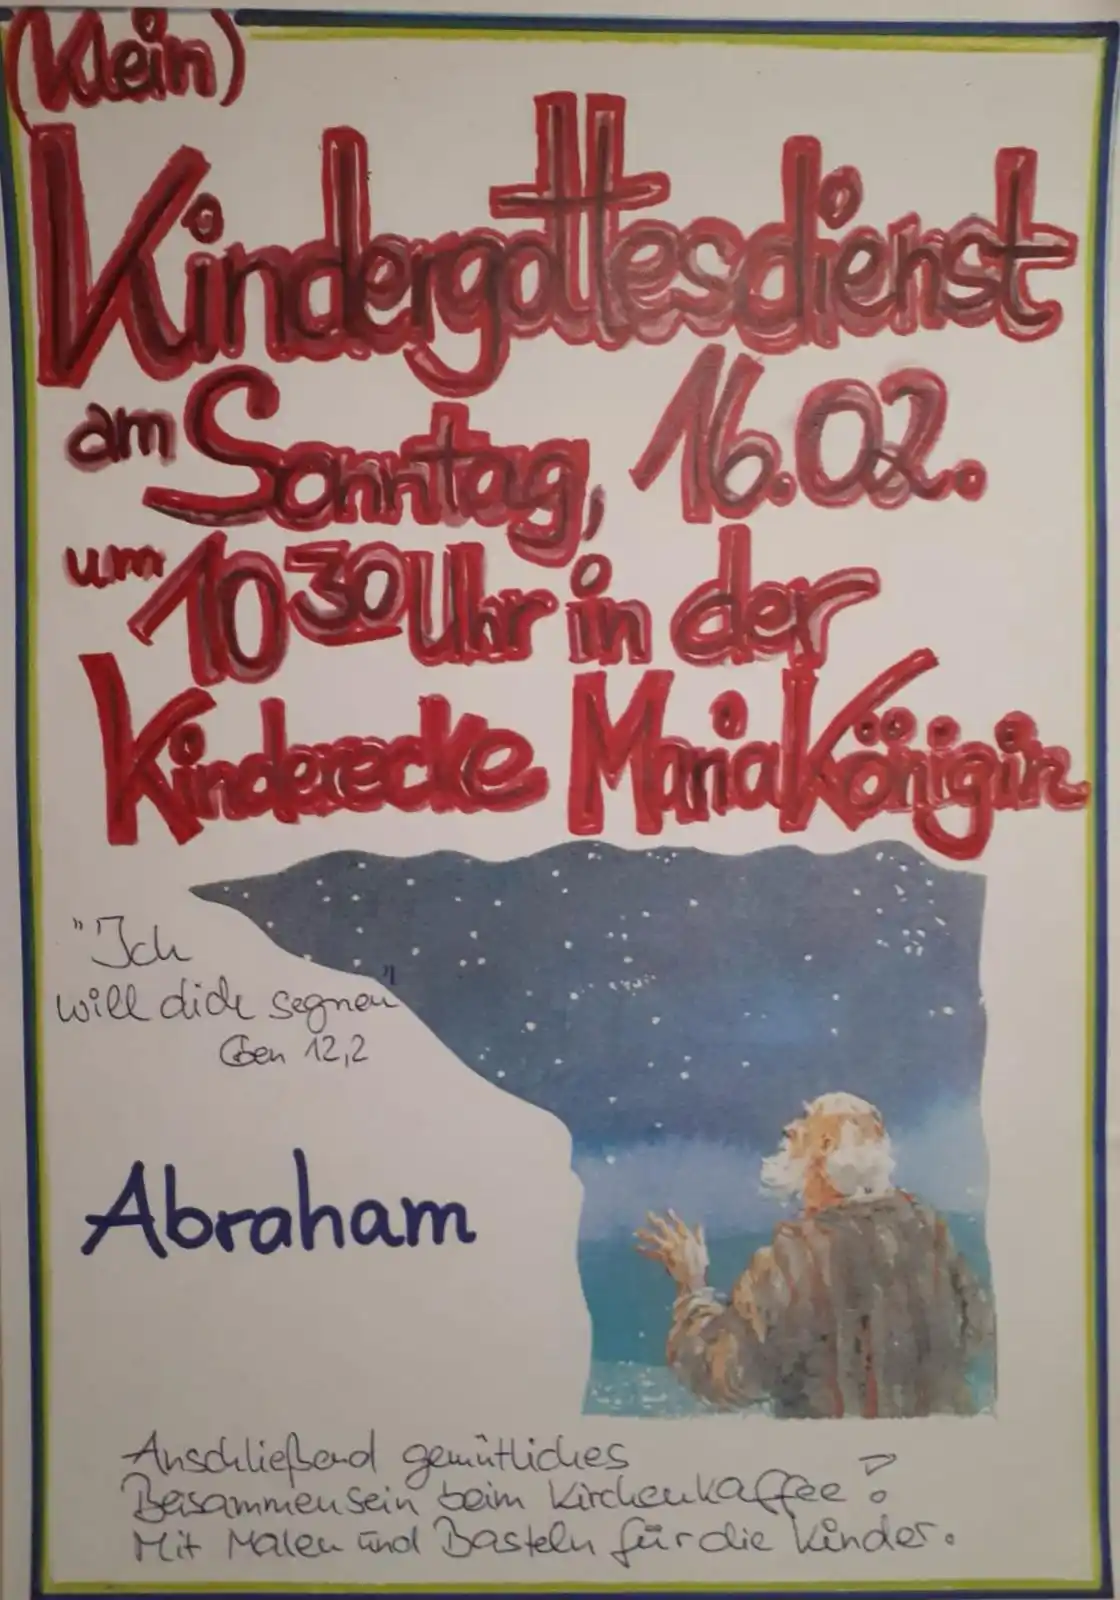 (Klein)
Kindergottesdienst
am Sonntag, 16.02.
um 10 30 Uhr in der
Kinderecke Maria Königin
"Ich
will dich segnen"
Gen 12,2
Abraham
Anschließend gemütliches
Beisammensein beim Kirchenkaffee!
Mit Malen und Basteln für die Kinder.